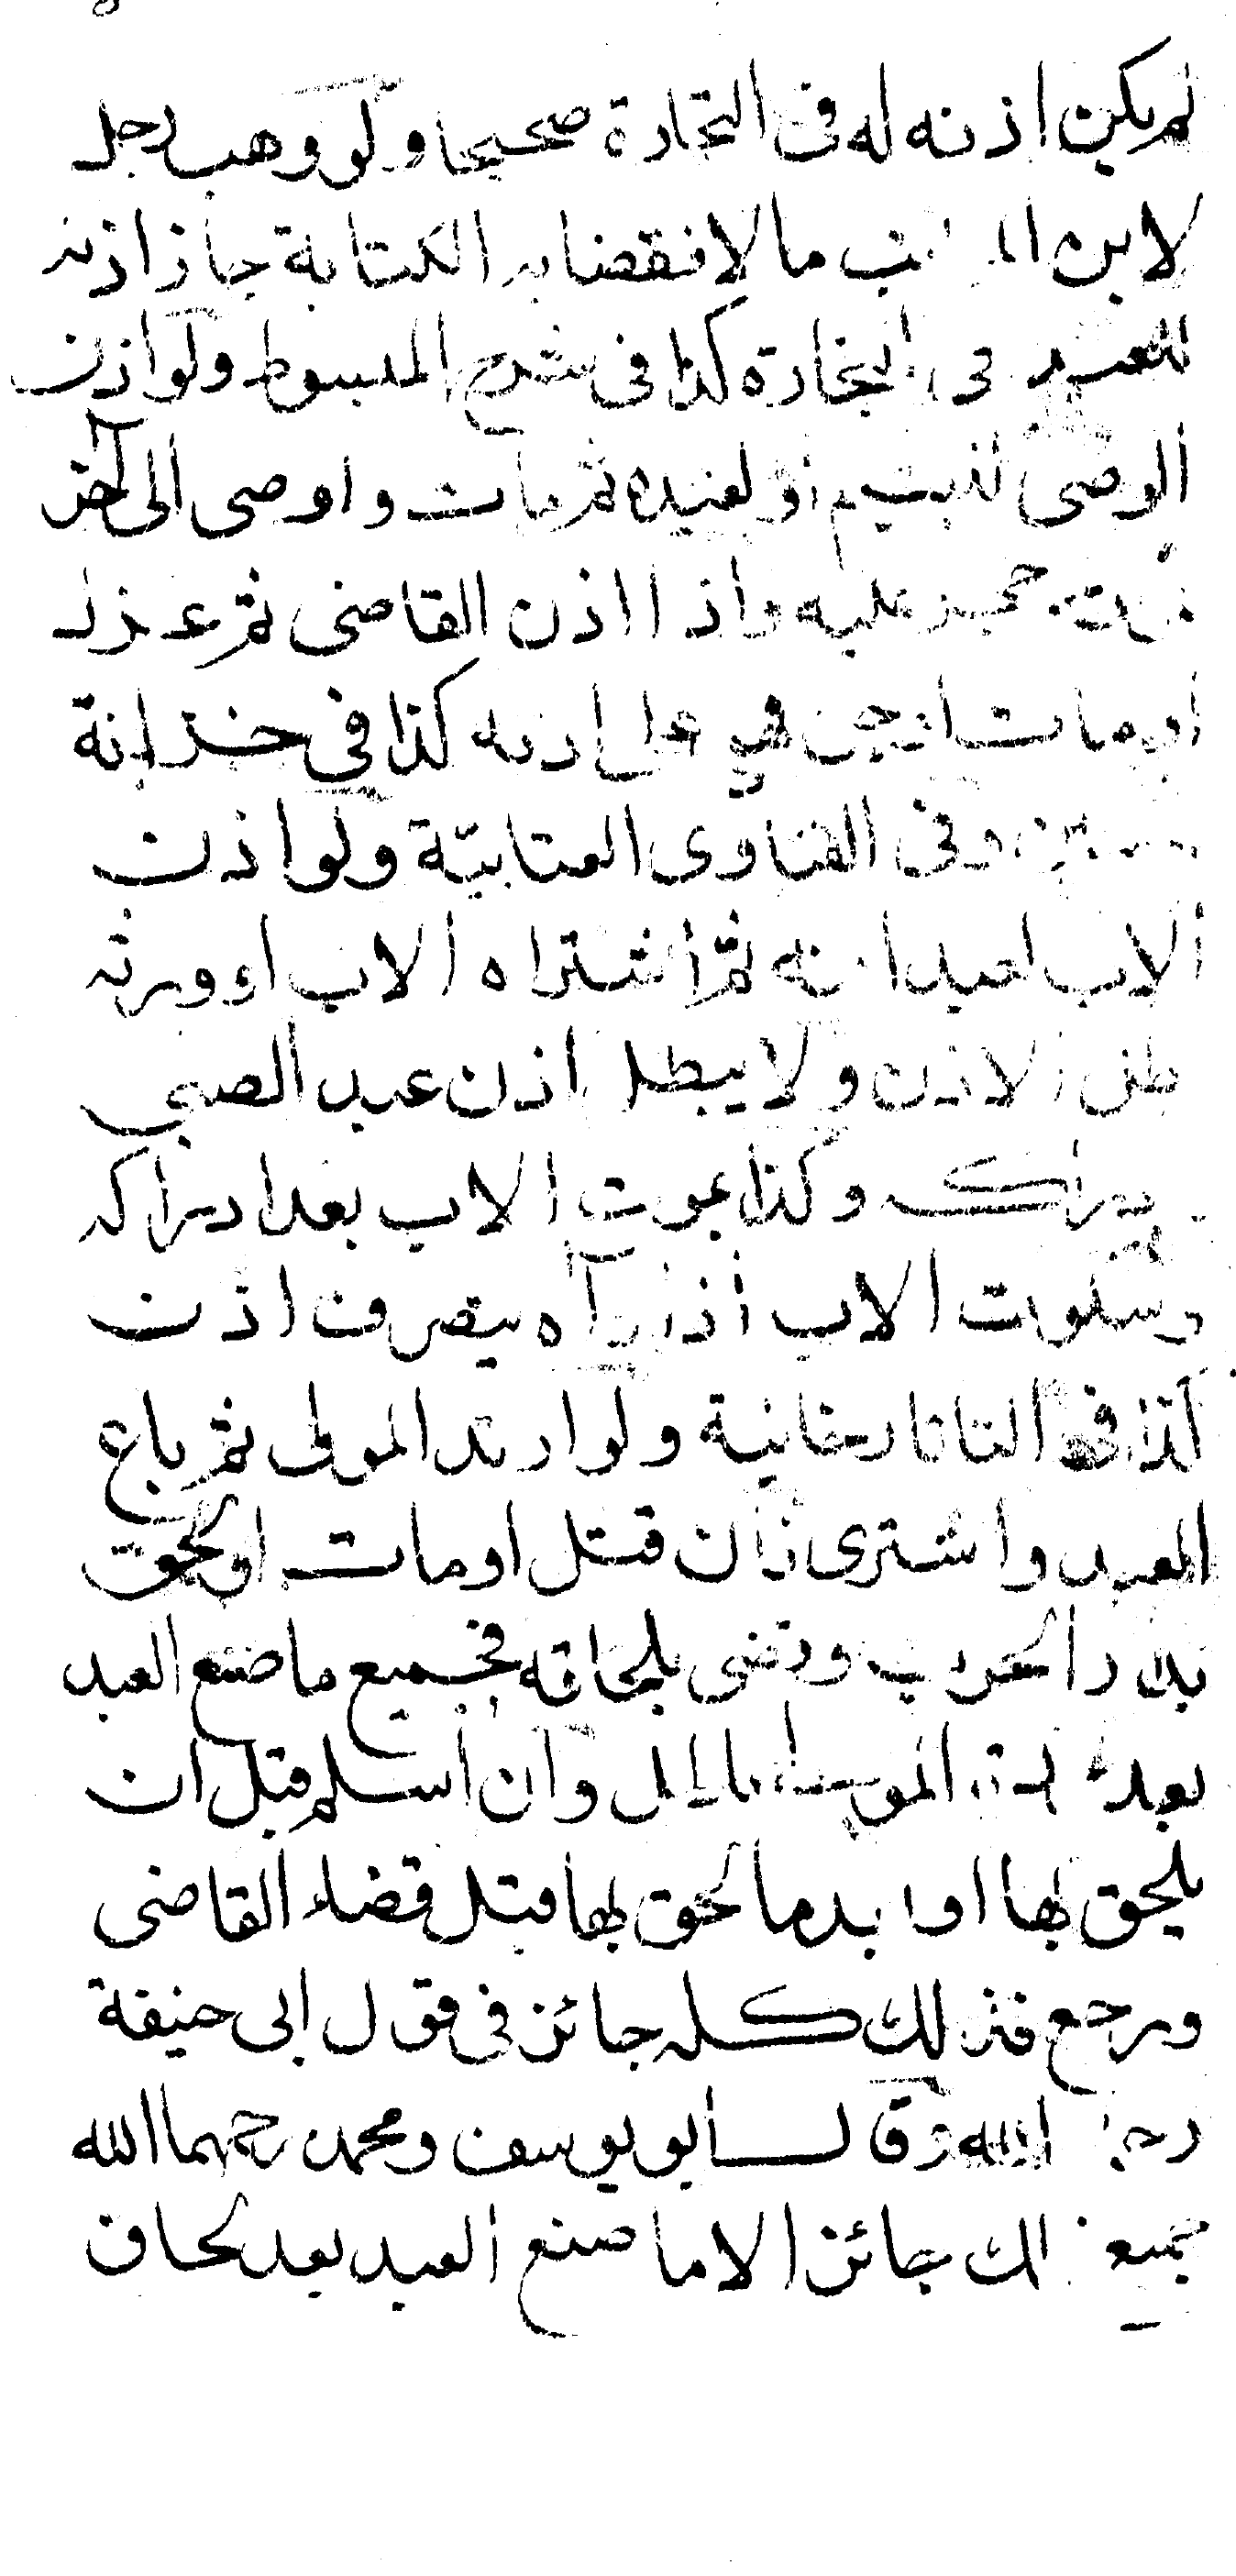 لم يكن اذنه له في التجارة صحيحا ولو وهب رجل
لابن مالا فقضا به الكتابة جاز اذنه
للعبد في التجارة كذا في شرح المبسوط ولو اذن
الوصى لليتيم او لعبده ثم مات واوصى الى اخر
حجر عليه واذا اذن القاضى ثم عزل
او مات او جن فهو على اذنه كذا في خزانة
وفى الفتاوى العتابيّة ولو اذن
الاب لعبد ابنه ثمّ اشتراه الاب او ورثه
بطل الاذن ولا يبطل اذن عبد الصبى
وكذا بموت الاب بعد ادراكه
وسكوت الاب اذا رآه يتصرف اذن
كذا في التاتارخانية ولو ارتد المولى ثم باع
العبد واشترى فان قتل او مات او لحق
بدار الحرب وقضى بلحاقه فجميع ما صنع العبد
بعد ردة المولى باطل وان اسلم قبل ان
يلحق بها او بعد ما لحق بها قبل قضاء القاضى
ورجع فذلك كله جائز في قول ابى حنيفة
رحمه الله وقال ابو يوسف ومحمد رحمهما الله
جميع ذلك جائز الا ما صنع العبد بعد لحاق